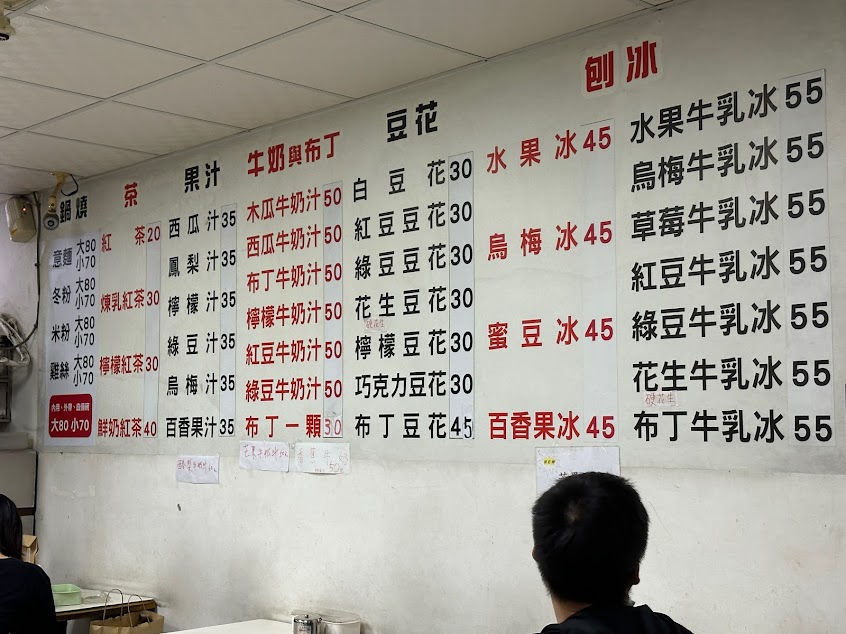 鍋燒
意麵 大80 小70
冬粉 大80 小70
米粉 大80 小70
雞絲 大80 小70
大80 小70
茶
紅茶20
煉乳紅茶30
檸檬紅茶30
鮮奶紅茶40
果汁
西瓜汁35
鳳梨汁35
檸檬汁35
綠豆汁35
烏梅汁35
百香果汁35
牛奶與布丁
木瓜牛奶汁50
西瓜牛奶汁50
布丁牛奶汁50
檸檬牛奶汁50
紅豆牛奶汁50
綠豆牛奶汁50
布丁一顆30
豆花
白豆花30
紅豆豆花30
綠豆豆花30
花生豆花30
硬花生
檸檬豆花30
巧克力豆花30
布丁豆花45
刨冰
水果冰45
烏梅冰45
蜜豆冰45
百香果冰45
水果牛乳冰55
烏梅牛乳冰55
草莓牛乳冰55
紅豆牛乳冰55
綠豆牛乳冰55
花生牛乳冰55
硬花生
布丁牛乳冰55